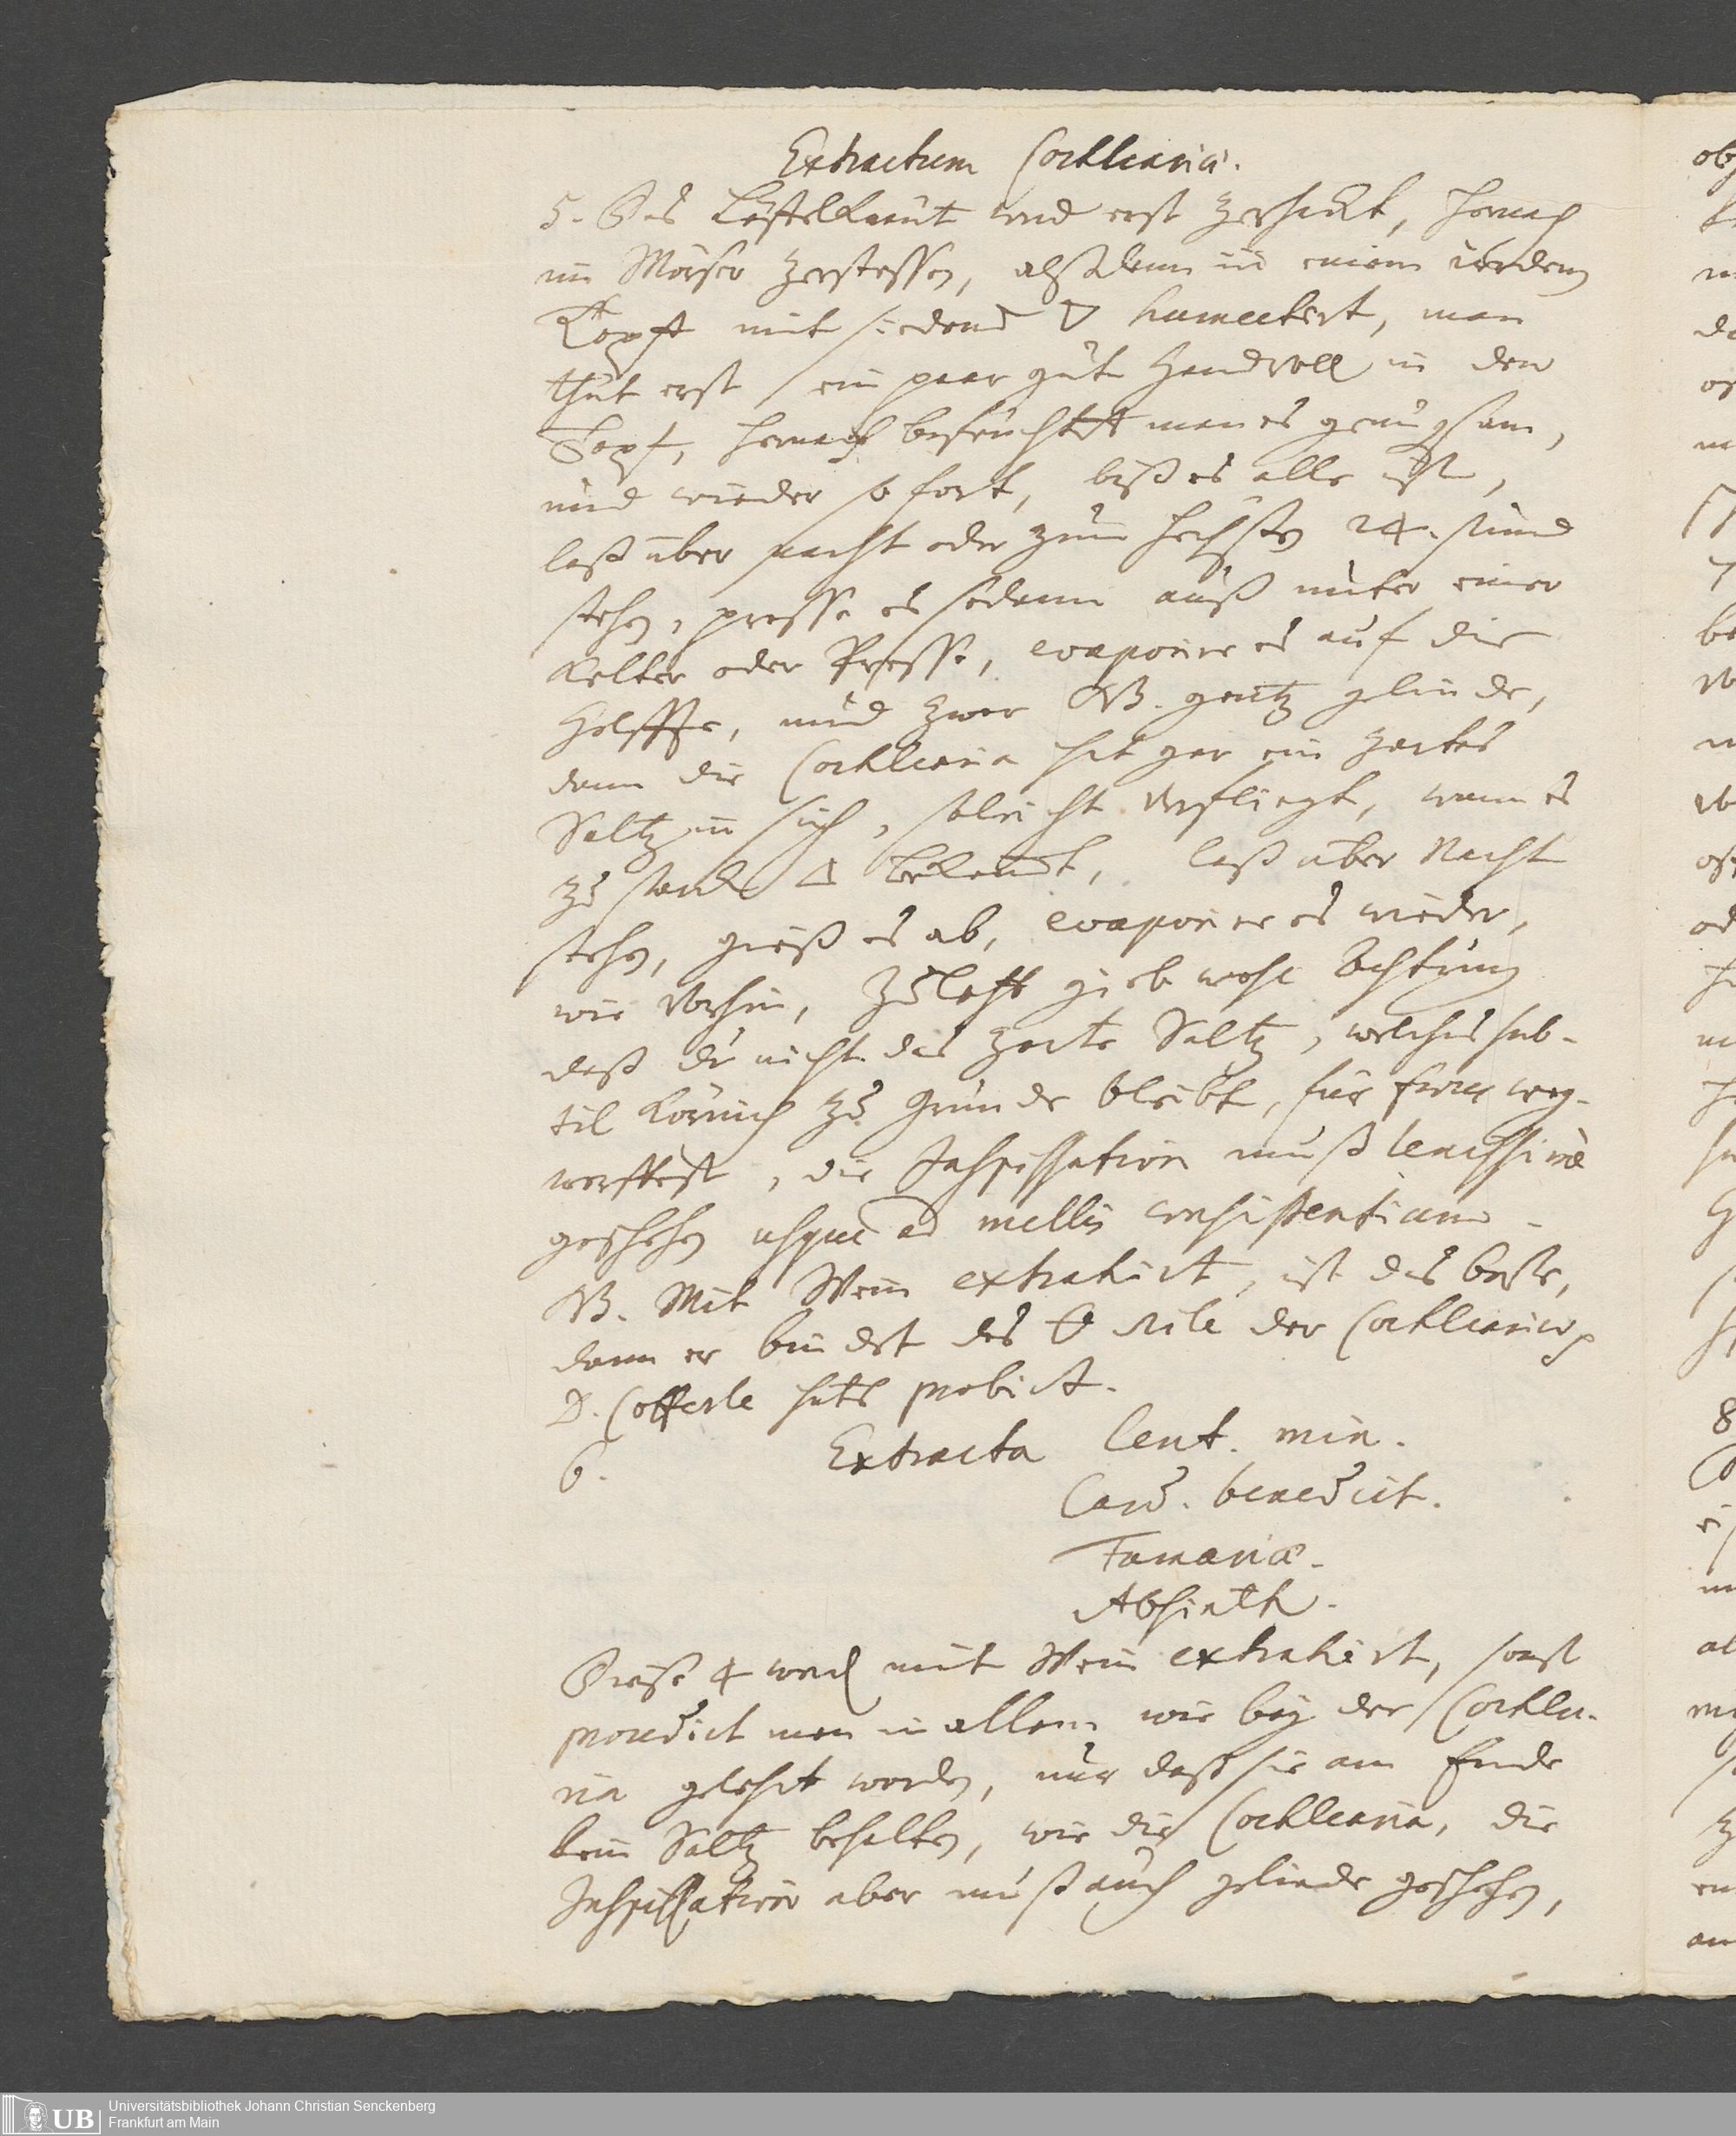 Extractum Cochleariæ.
5. Das Löffelkraut wird erst zerhackt, hernach
im Mörser zerstossen, alßdann in einem irrdenen
Topff mit siedend 🜄 humectirt, man
thut erst ein paar gute Handvoll in den
Topf, hernach befeuchtet man es genugsam,
und wieder so fort, biß es alle ist,
laß über nacht oder zum höchsten 24. stund
stehen, presse es sodann auß unter einer
Kelter oder Presse, evaporire es auf die
Helffte, und zwar NB. gantz gelinde,
dann die Cochlearia hat gar ein zartes
Saltz in sich, so leicht verfliegt, wann es
zu starck 🜂 bekommt, laß über Nacht
stehen, gieß es ab, evaporire es wieder,
wie vorhin, zuletzt gieb wohl Achtung
daß du nicht das zarte Saltz, welches sub-
til körnich zu Grunde bleibt, für fæces weg-
werffest, die Inspissation muß lenissimè
geschehen usque ad mellis consistentiam.
NB. Mit Wein extrahirt, ist das beste,
dann er bindet das volatile der Cochleariæ,
D. Cofferle hats probirt.
6. Extracta Cent. min.
Card. benedict.
Fumariæ.
Absinth.
Diese 4 werd mit Wein extrahirt, sonst
procedirt man in allem wie bey der Cochlea-
ria gelehrt worden, nur daß sie am Ende
kein Saltz behalten, wie die Cochlearia, die
Inspissation aber muß auch gelinde geschehen,
Universitätsbibliothek Johann Christian Senckenberg
UB Frankfurt am Main